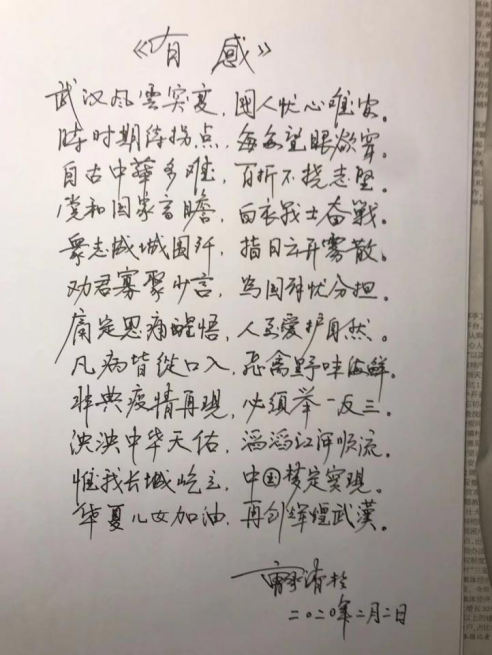 《有感》
武汉风雲突变，國人忧心难安。
時时期待拐点，每每望眼欲穿。
自古中華多难，百折不挠志坚。
党和国家高瞻，白衣战士奋戰。
衆志成城国歼，指日云开雾散。
劝君寡聚少言，为国解忧分担。
痛定思痛醒悟，人至爱护自然。
凡病皆從口入，恶禽野味海鲜。
非典疫情再現，必须举一反三。
泱泱中华天佑，滔滔江河顺流。
惟我长城屹立，中国梦定实現。
华夏儿女加油，再创辉煌武漢。
二〇二〇年二月二日